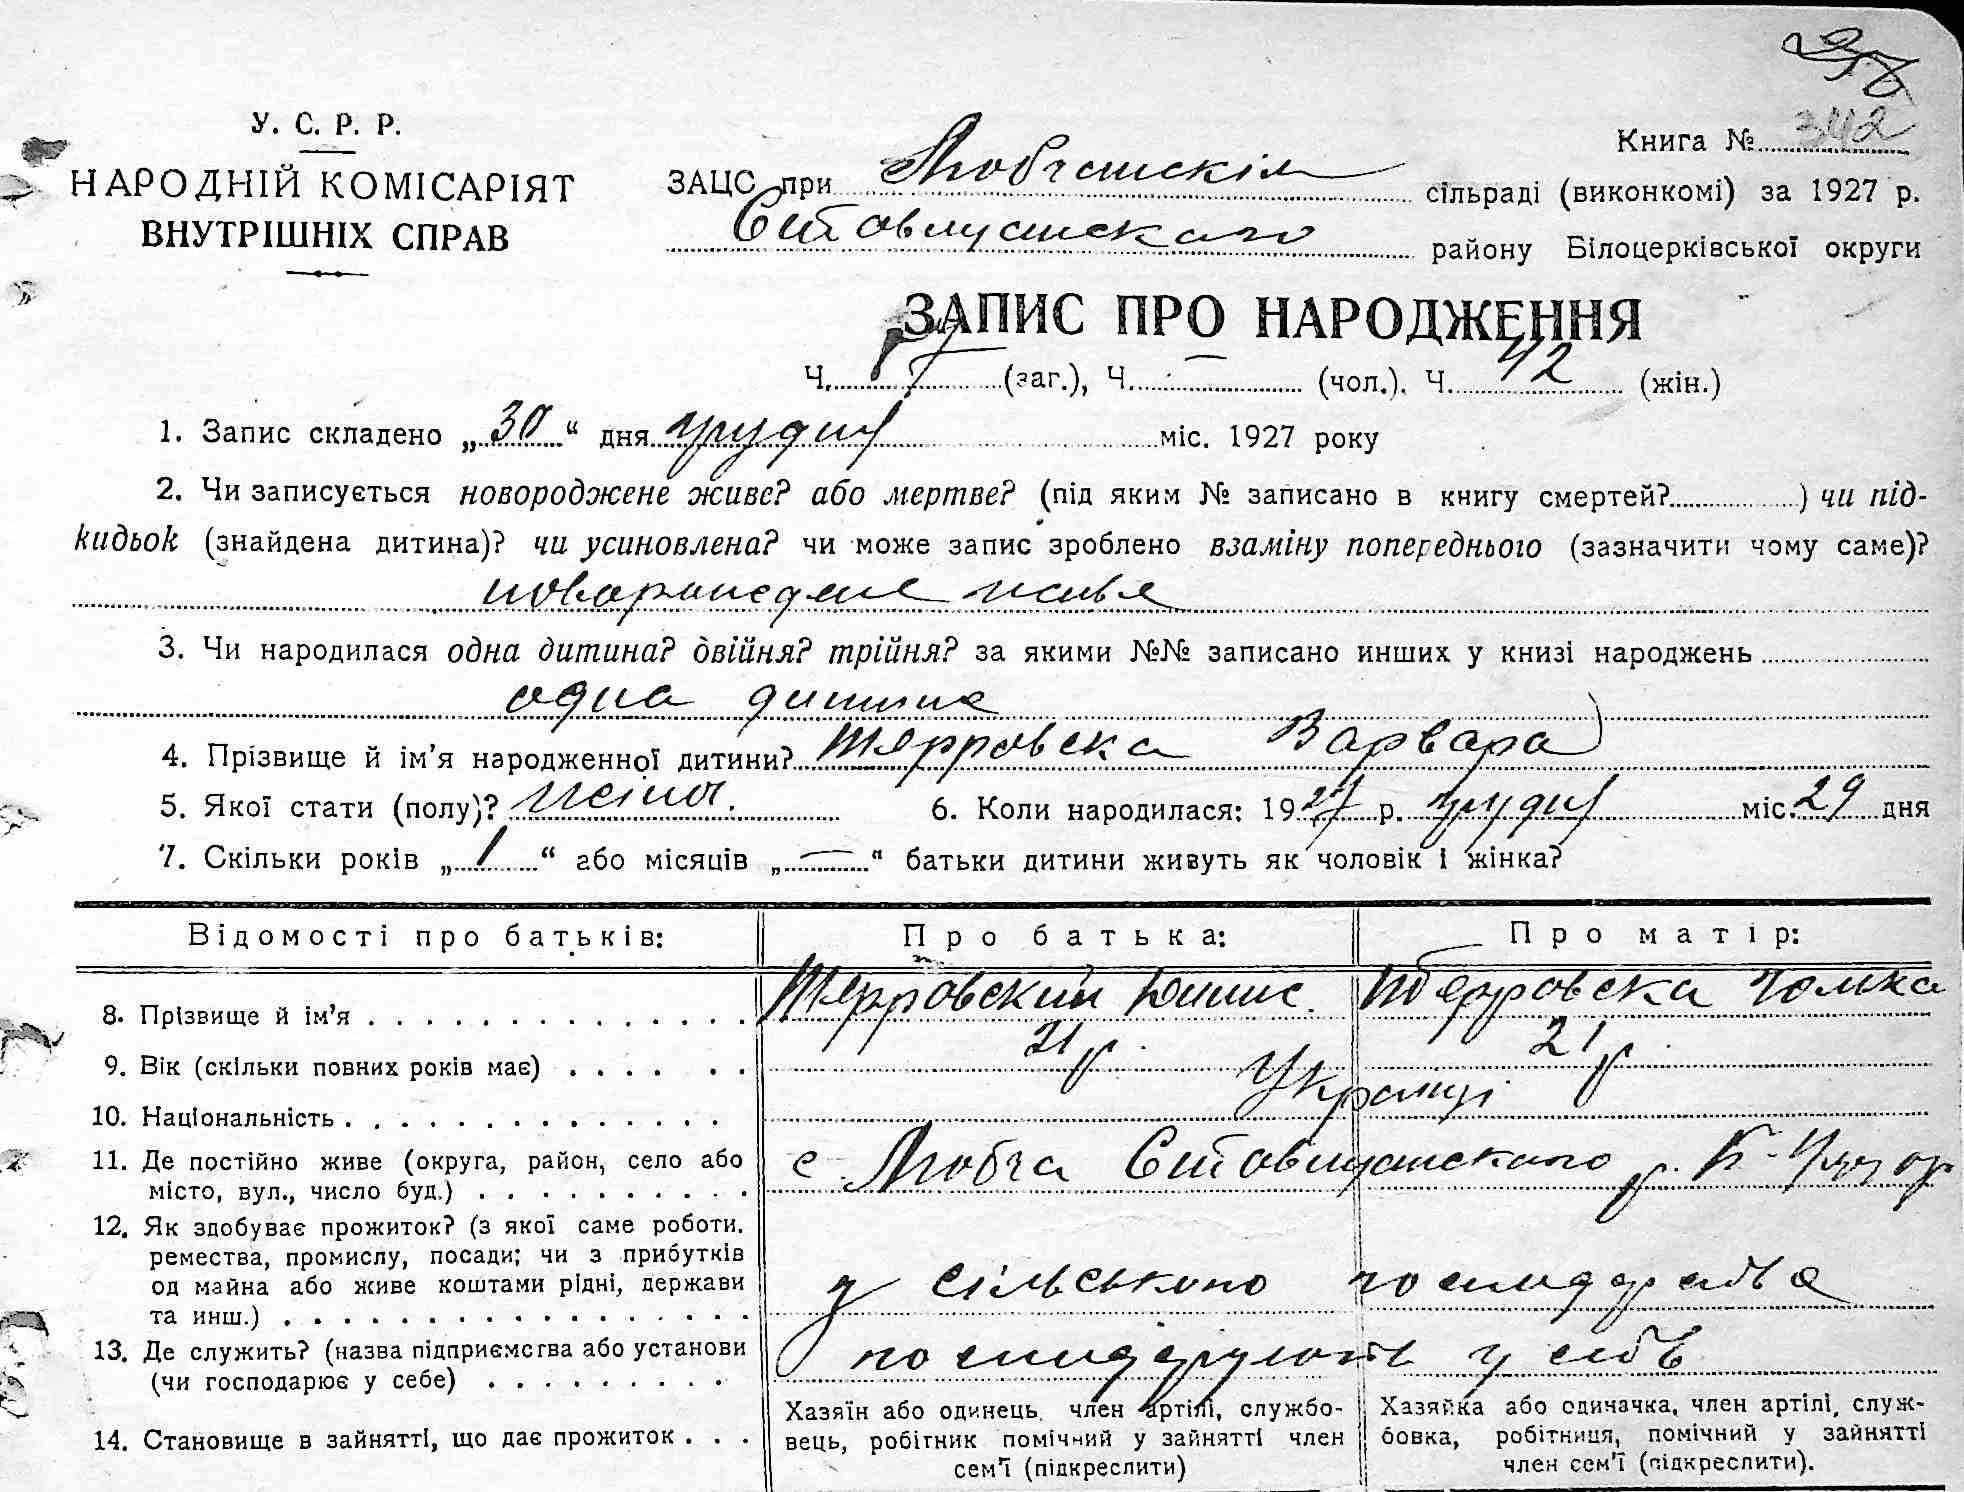 Книга № 342
У. С. Р. Р.
НАРОДНІЙ КОМІСАРІЯТ
ВНУТРІШНІХ СПРАВ
ЗАЦС при сільраді (виконкомі) за 1927 р.
району Білоцерківської округи
ЗАПИС ПРО НАРОДЖЕННЯ
Ч. (заг.), Ч. — (чол.). Ч. 42 (жін.)
1. Запис складено „30“ дня грудня міс. 1927 року
2. Чи записується новороджене живе? або мертве? (під яким № записано в книгу смертей? ) чи під-
кидьок (знайдена дитина)? чи усиновлена? чи може запис зроблено взаміну попереднього (зазначити чому саме)?
3. Чи народилася одна дитина? двійня? трійня? за якими №№ записано инших у книзі народжень
одна дитина
4. Прізвище й ім’я народженної дитини? Варвара
5. Якої стати (полу)? жіноч. 6. Коли народилася: 1927 р. грудня міс. 29 дня
7. Скільки років „1“ або місяців „—“ батьки дитини живуть як чоловік і жінка?
Відомості про батьків: Про батька: Про матір:
8. Прізвище й ім’я
9. Вік (скільки повних років має) 21 р. 21 р.
10. Національність Українці
11. Де постійно живе (округа, район, село або
місто, вул., число буд.) с Любча
12. Як здобуває прожиток? (з якої саме роботи.
ремества, промислу, посади; чи з прибутків
од майна або живе коштами рідні, держави
та инш.) з сільського господарства
13. Де служить? (назва підприємства або установи
(чи господарює у себе) господарюють у себе
14. Становище в зайнятті, що дає прожиток
Хазяїн або одинець, член артілі, службо-
вець, робітник помічний у зайнятті член
сем’ї (підкреслити)
Хазяйка або одиначка, член артілі, служ-
бовка, робітниця, помічний у зайнятті
член сем’ї (підкреслити).